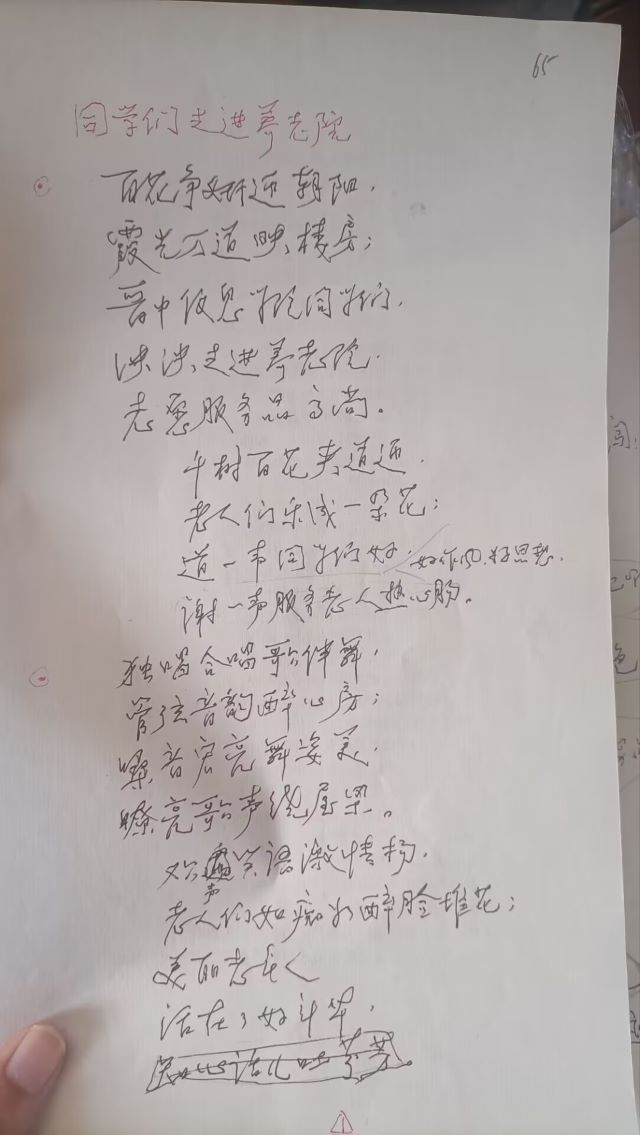 65
同学们走进养老院
百花争妍迎朝阳，
霞光万道映楼房；
晋中信息学院同学们，
决决走进养老院．
志愿服务品高尚。
千树百花夹道迎．
老人们乐成一朵花；
道一声同学们好，好作风，好思想．
谢一声服务老人热心肠。
独唱合唱歌伴舞，
管弦音韵醉心房；
嗓音宏亮舞姿美．
嘹亮歌声绕屋梁。
欢声笑语激情扬．
老人们如痴如醉脸堆花；
美丽老人
活在了好年华，